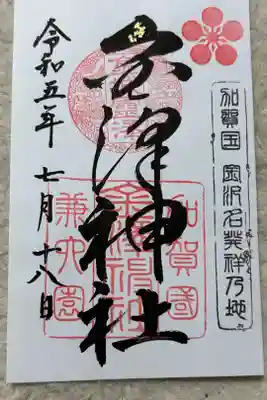 加賀国 金沢名発祥乃地
金澤神社
加賀國
金澤神社
兼六園
令和五年 七月 十八日